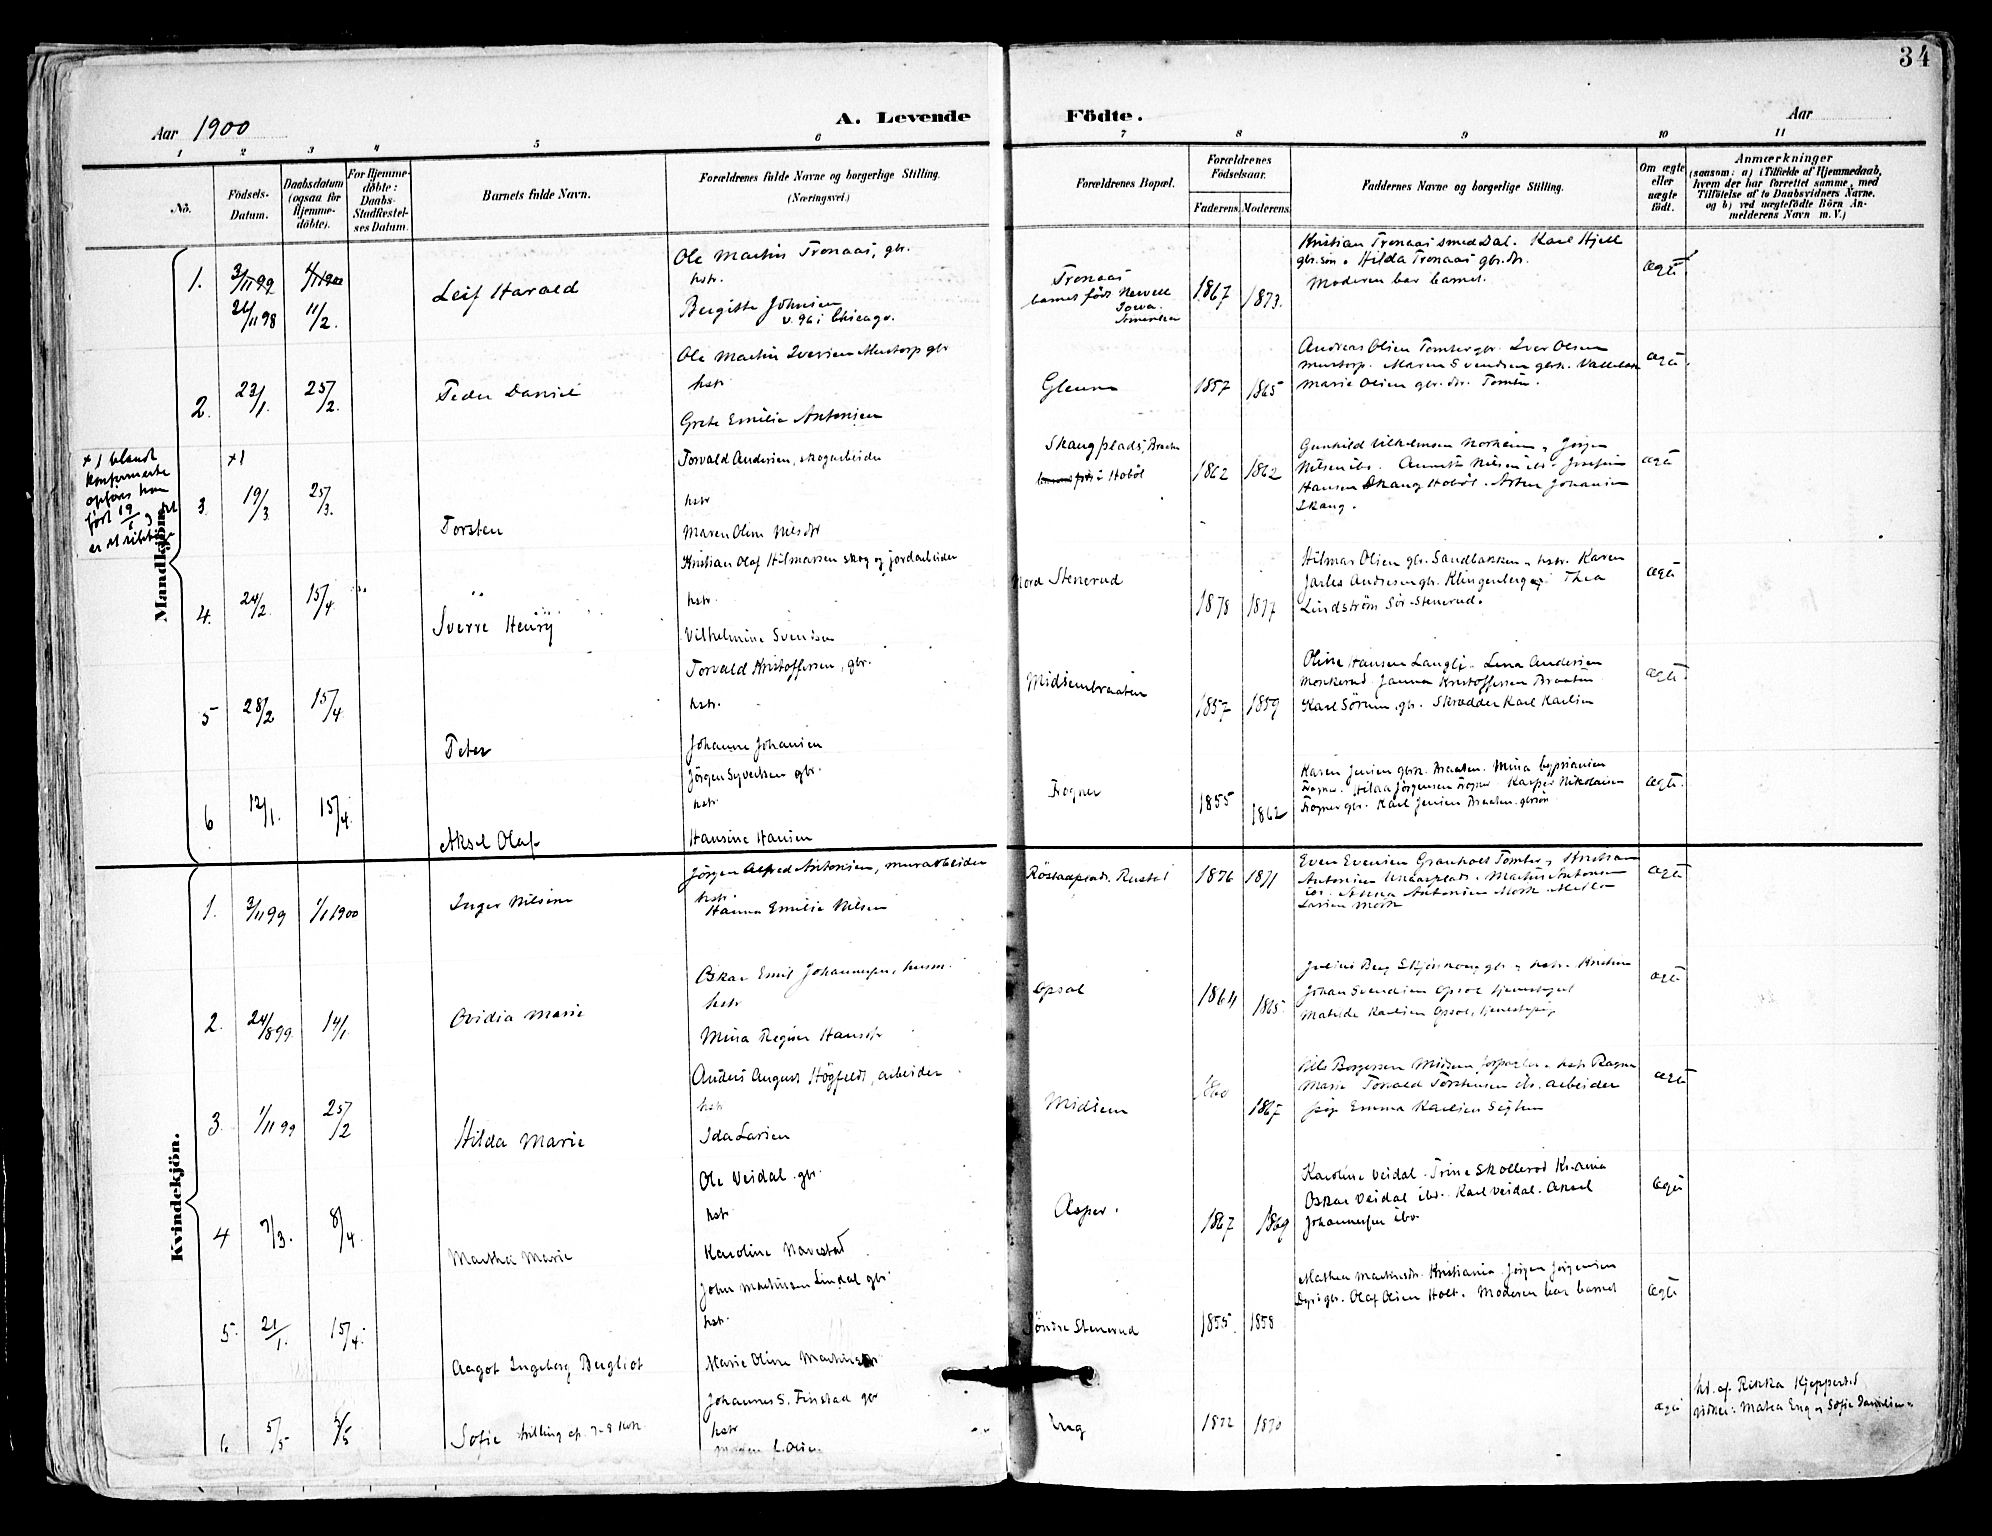 34
Aar 1900
A. Levende Födte.
Aar
1 2 3 4 5 6 7 8 9 10 11
No.
Födsels-Datum.
Daabsdatum (ogsaa for Hjemme-döbte).
For Hjemme-döbte: Daabs-Stadfæstel-ses Datum.
Barnets fulde Navn.
Forældrenes fulde Navne og borgerlige Stilling.
(Næringsvei.)
Forældrenes Bopæl.
Forældrenes Födselsaar.
Faderens. Moderens.
Faddernes Navne og borgerlige Stilling.
Om ægte eller uægte födt.
Anmærkninger
(saasom: a) i Tilfælde af Hjemmedaab, hvem der har forrettet samme, med Tilföielse af to Daabsvidners Navne. og b) ved uægtefödte Börn An-melderens Navn m. V.)
Mandkjön.
1. 3/11 99 1/1 1900
26/11 98 11/2.
Leif Harald
Ole Martin Tronaas, gbr.
hstr.
Bergitte Johnsen
v. 96 i Chicago.
Tronaas
barnet födt Newell
Iowa.
Amerika
1867 1873.
Kristian Tronaas smed Dal. Karl Hjell
gbr.sön. Hilda Tronaas gbr.dr.
Moderen bar barnet.
ægte
2. 23/1. 25/2.
Peder Daniel
Ole Martin Iversen Mustorp gbr
hstr.
Grete Emilie Antonsen
Glenne
1857 1865
Andreas Olsen Tomter gbr. Iver Olsen
Mustorp. Maren Svendsen gbrk.
Marie Olsen gbr. dr. Tomter.
ægte.
+ 1 blandt
konfirmerte
opföres han
född 19/1 og
er det riktige
+1
3. 19/3 25/3.
Torsten
Torvald Andersen, skogarbeider
hstr
Maren Oline Nilsdtr
Skaug plads, Braaten
i Hobøl
1862 1862
Gunhild Vilhelmsen Norheim, Jörgen
Nilsen ibs. Annette Nilsen ibs. Josefine
Hansen Skaug Hobøl. Artur Johansen
Skaug.
ægte
4. 24/2. 15/4
Sverre Henry
Kristian Olaf Hilmarsen skog og jordarbeider
hstr.
Vilhelmine Svensen
Nord Stenerud
1878 1877
Hilmar Olsen gbr. Sandbakken, hstr. Karen
Jarles Andresen gbr. Klingenberg, Thea
Lindström Sör Stenerud.
ægte
5 28/2 15/4
Peter
Torvald Kristoffersen, gbr.
hstr.
Johanne Johansen
Midsembraaten
1857 1859
Oline Hansen Langli. Lina Andersen
Monkerud. Janna Kristoffersen Braaten
Karl Sörum, gbr. Skrædder Karl Karlsen
ægte
6 12/1. 15/4.
Aksel Olaf
Jörgen Syvertsen gbr.
hstr
Hansine Hansen
Frogner
1855 1862
Karen Jensen gbrk. Braaten. Mina Cypriansen
Frogner. Hilda Jörgensen Frogner Kasper Nikolaisen
Frogner gbr. Karl Jensen Braaten. gbrsön
ægte.
Kvindekjön.
1. 3/11 99 1/1 1900
Inger Nilsine
Jörgen Alfred Antonsen, murarbeider
hstr.
Hanna Emilie Nilsen
Röstadplads. Rustad
1876 1871
Even Evensen Granholt Tomter, Kristian
Antonsen. Martin Antonsen
ibs. Anna Antonsen Mörk
Larsen Mörk
ægte
2. 24/8 99. 14/1
Ovidia Marie
Oskar Emil Johannesen, husm.
hstr
Mina Regine Hansdtr
Opsal
1864 1865
Julius Berg gbr. hstr. Kristine
Johan Svendsen Opsal tjenestegut
Matilde Karlsen Opsal, tjenestepige
ægte
3. 1/11 99 25/2
Hilda Marie
Anders August Högfeldt, arbeider
hstr
Ida Larsen
Midsem
1860 1867
Nils Borgersen Midsem, forpagter. hstr Ragna
Marie Torvald Torstensen ibs, arbeider
pige Emma Karlsen
ægte
4 7/3. 8/4
Martha Marie
Ole Veidal. gbr.
hstr
Karoline Navestad
Asper.
1867 1869
Karoline Veidal. Trine Skollerud Kr.ania
Oskar Veidal ibs. Karl Veidal. Aksel
Johannesen ibs.
ægte
5. 21/1. 15/4.
Aagot Ingeborg Bergliot
John Martinsen Lindal gbr.
hstr.
Marie Oline Martinsdtr
Söndre Stenerud
1855. 1858
Mathea Martinsdr. Kristiania. Jörgen Jörgensen
gbr. Olaf Olsen Holt. Moderen bar barnet
ægte
6 5/5 5/5
Sofie
Johannes S. Finstad gbr
hstr
Olsen
Eng
1872 1870
ægte
hd. af. Rikka Kjeppestad
vidner: Matea Eng og Sofie Danielsen.